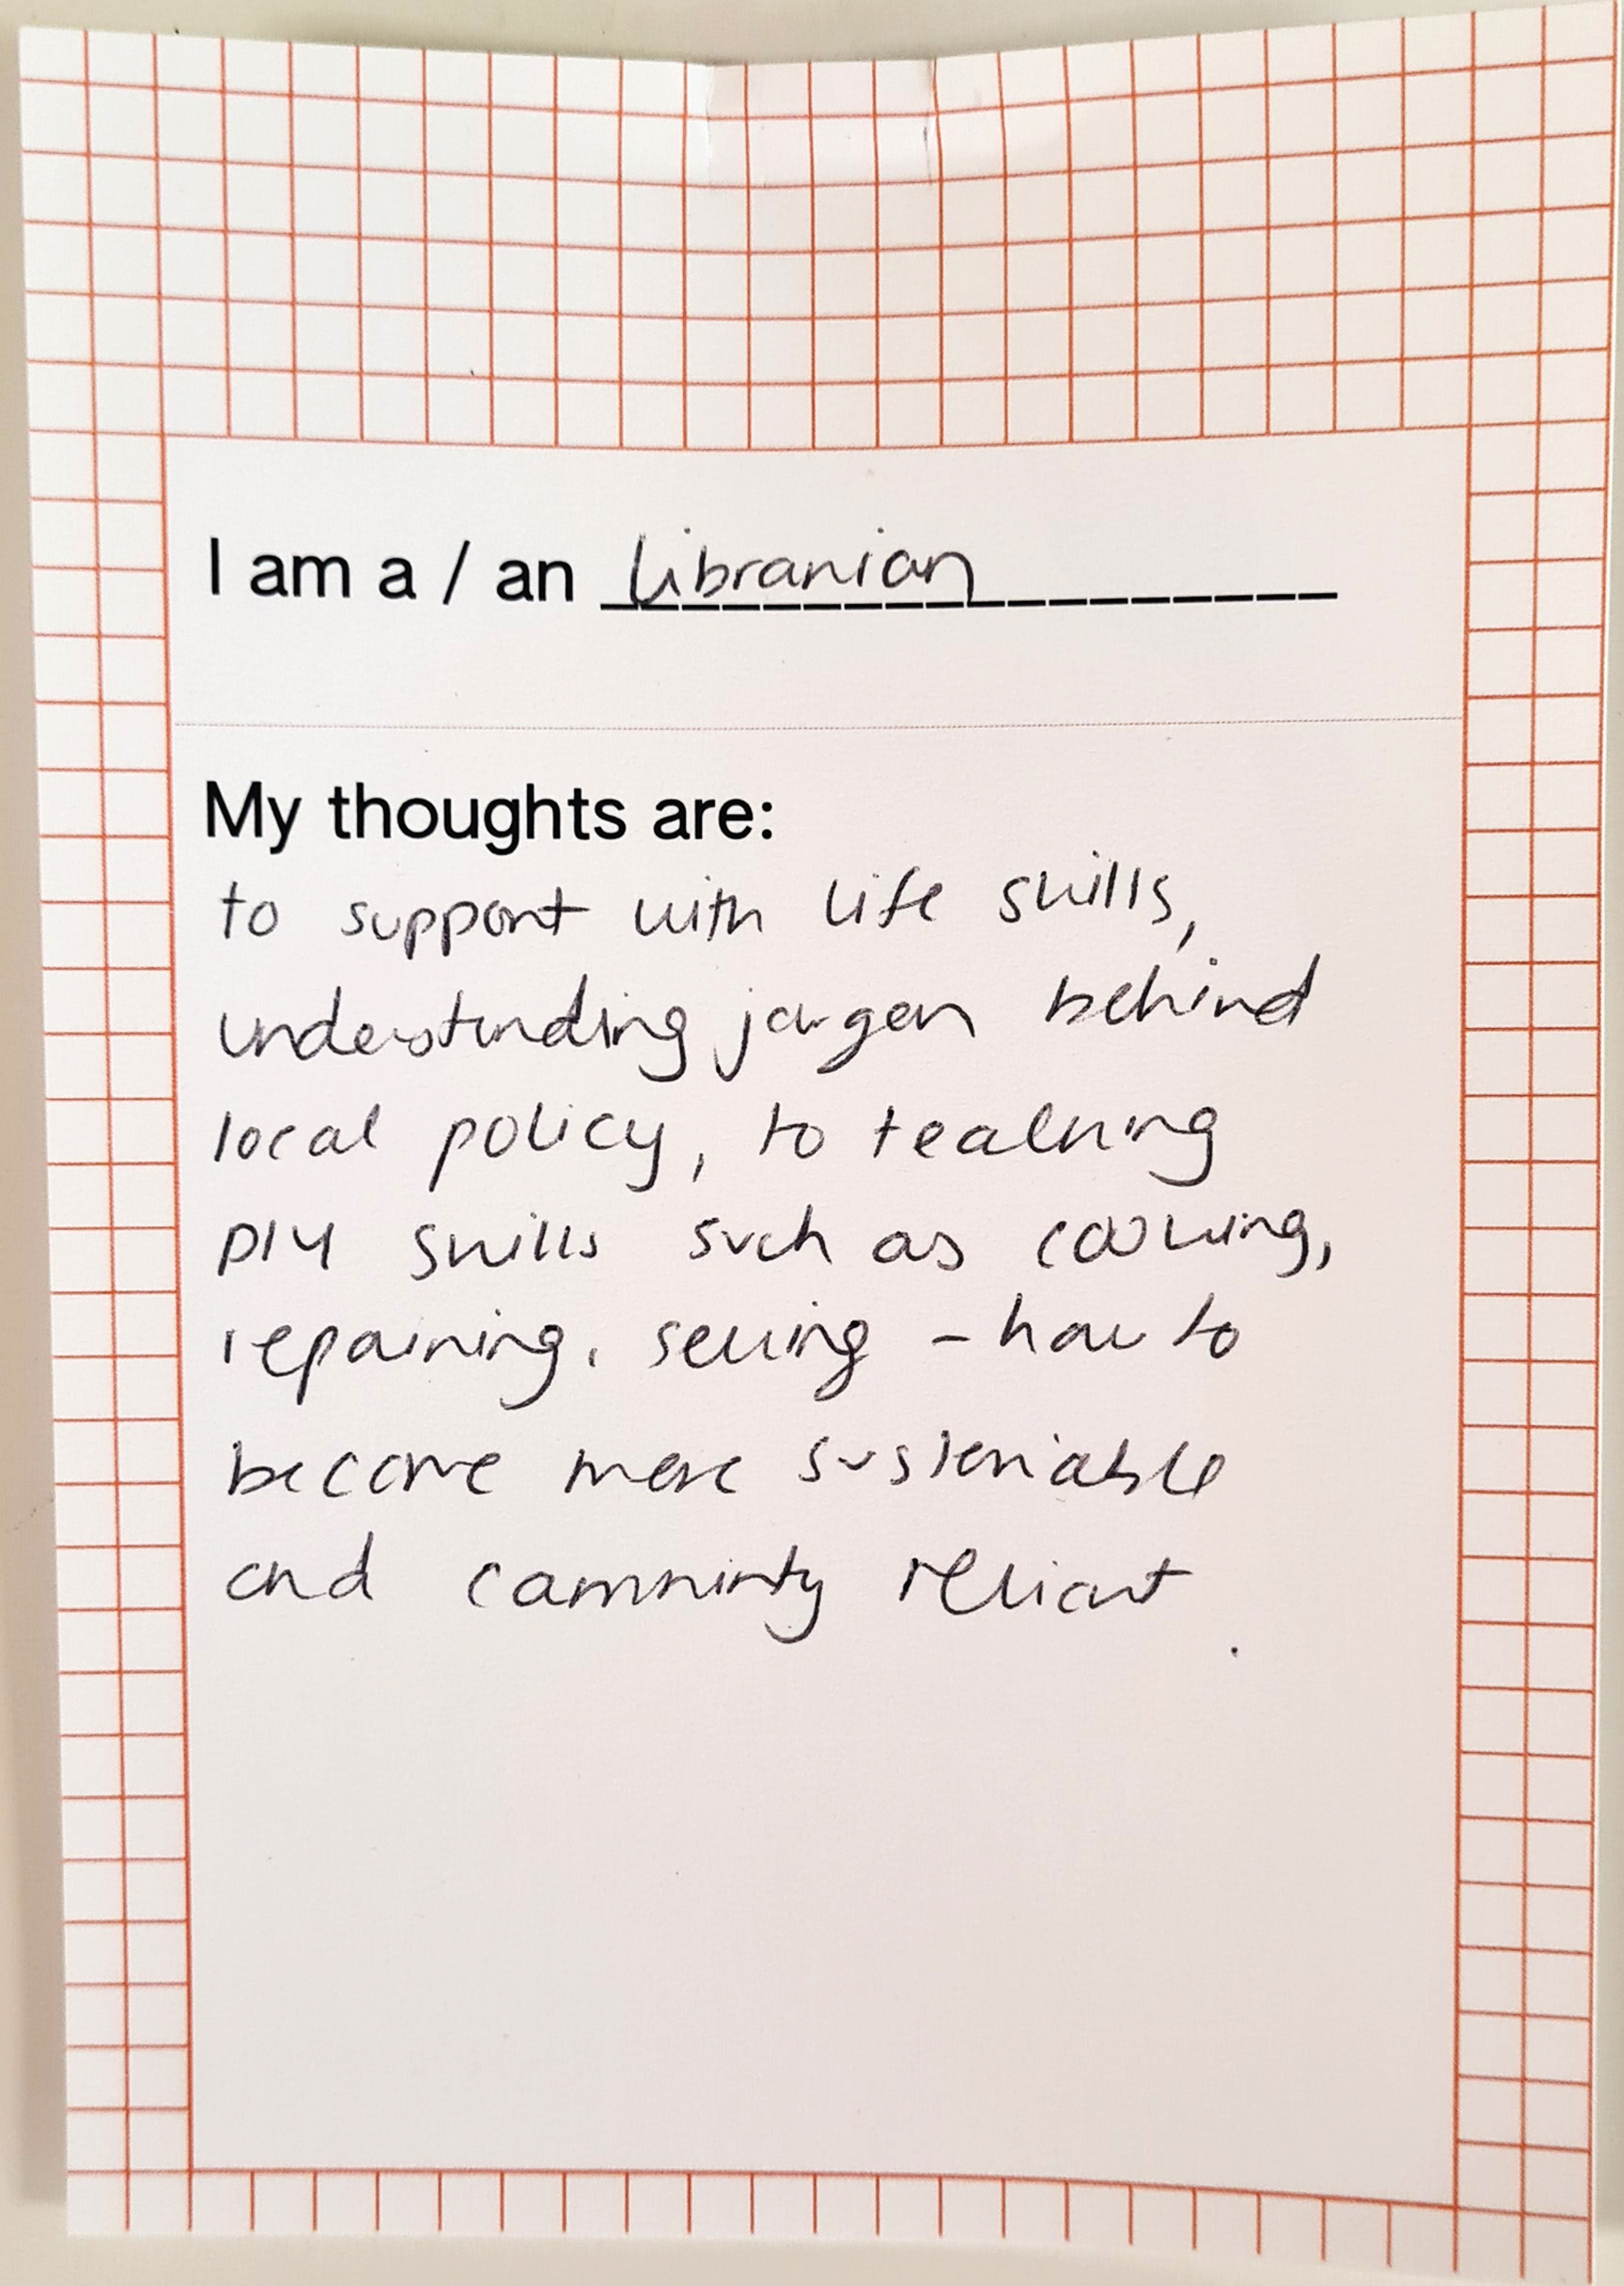 I am a / an librarian
My thoughts are:
to support with life skills,
understanding jargon behind
local policy, to teaching
DIY skills such as cooking,
repairing, sewing - how to
become more susteniable
and community reliant.